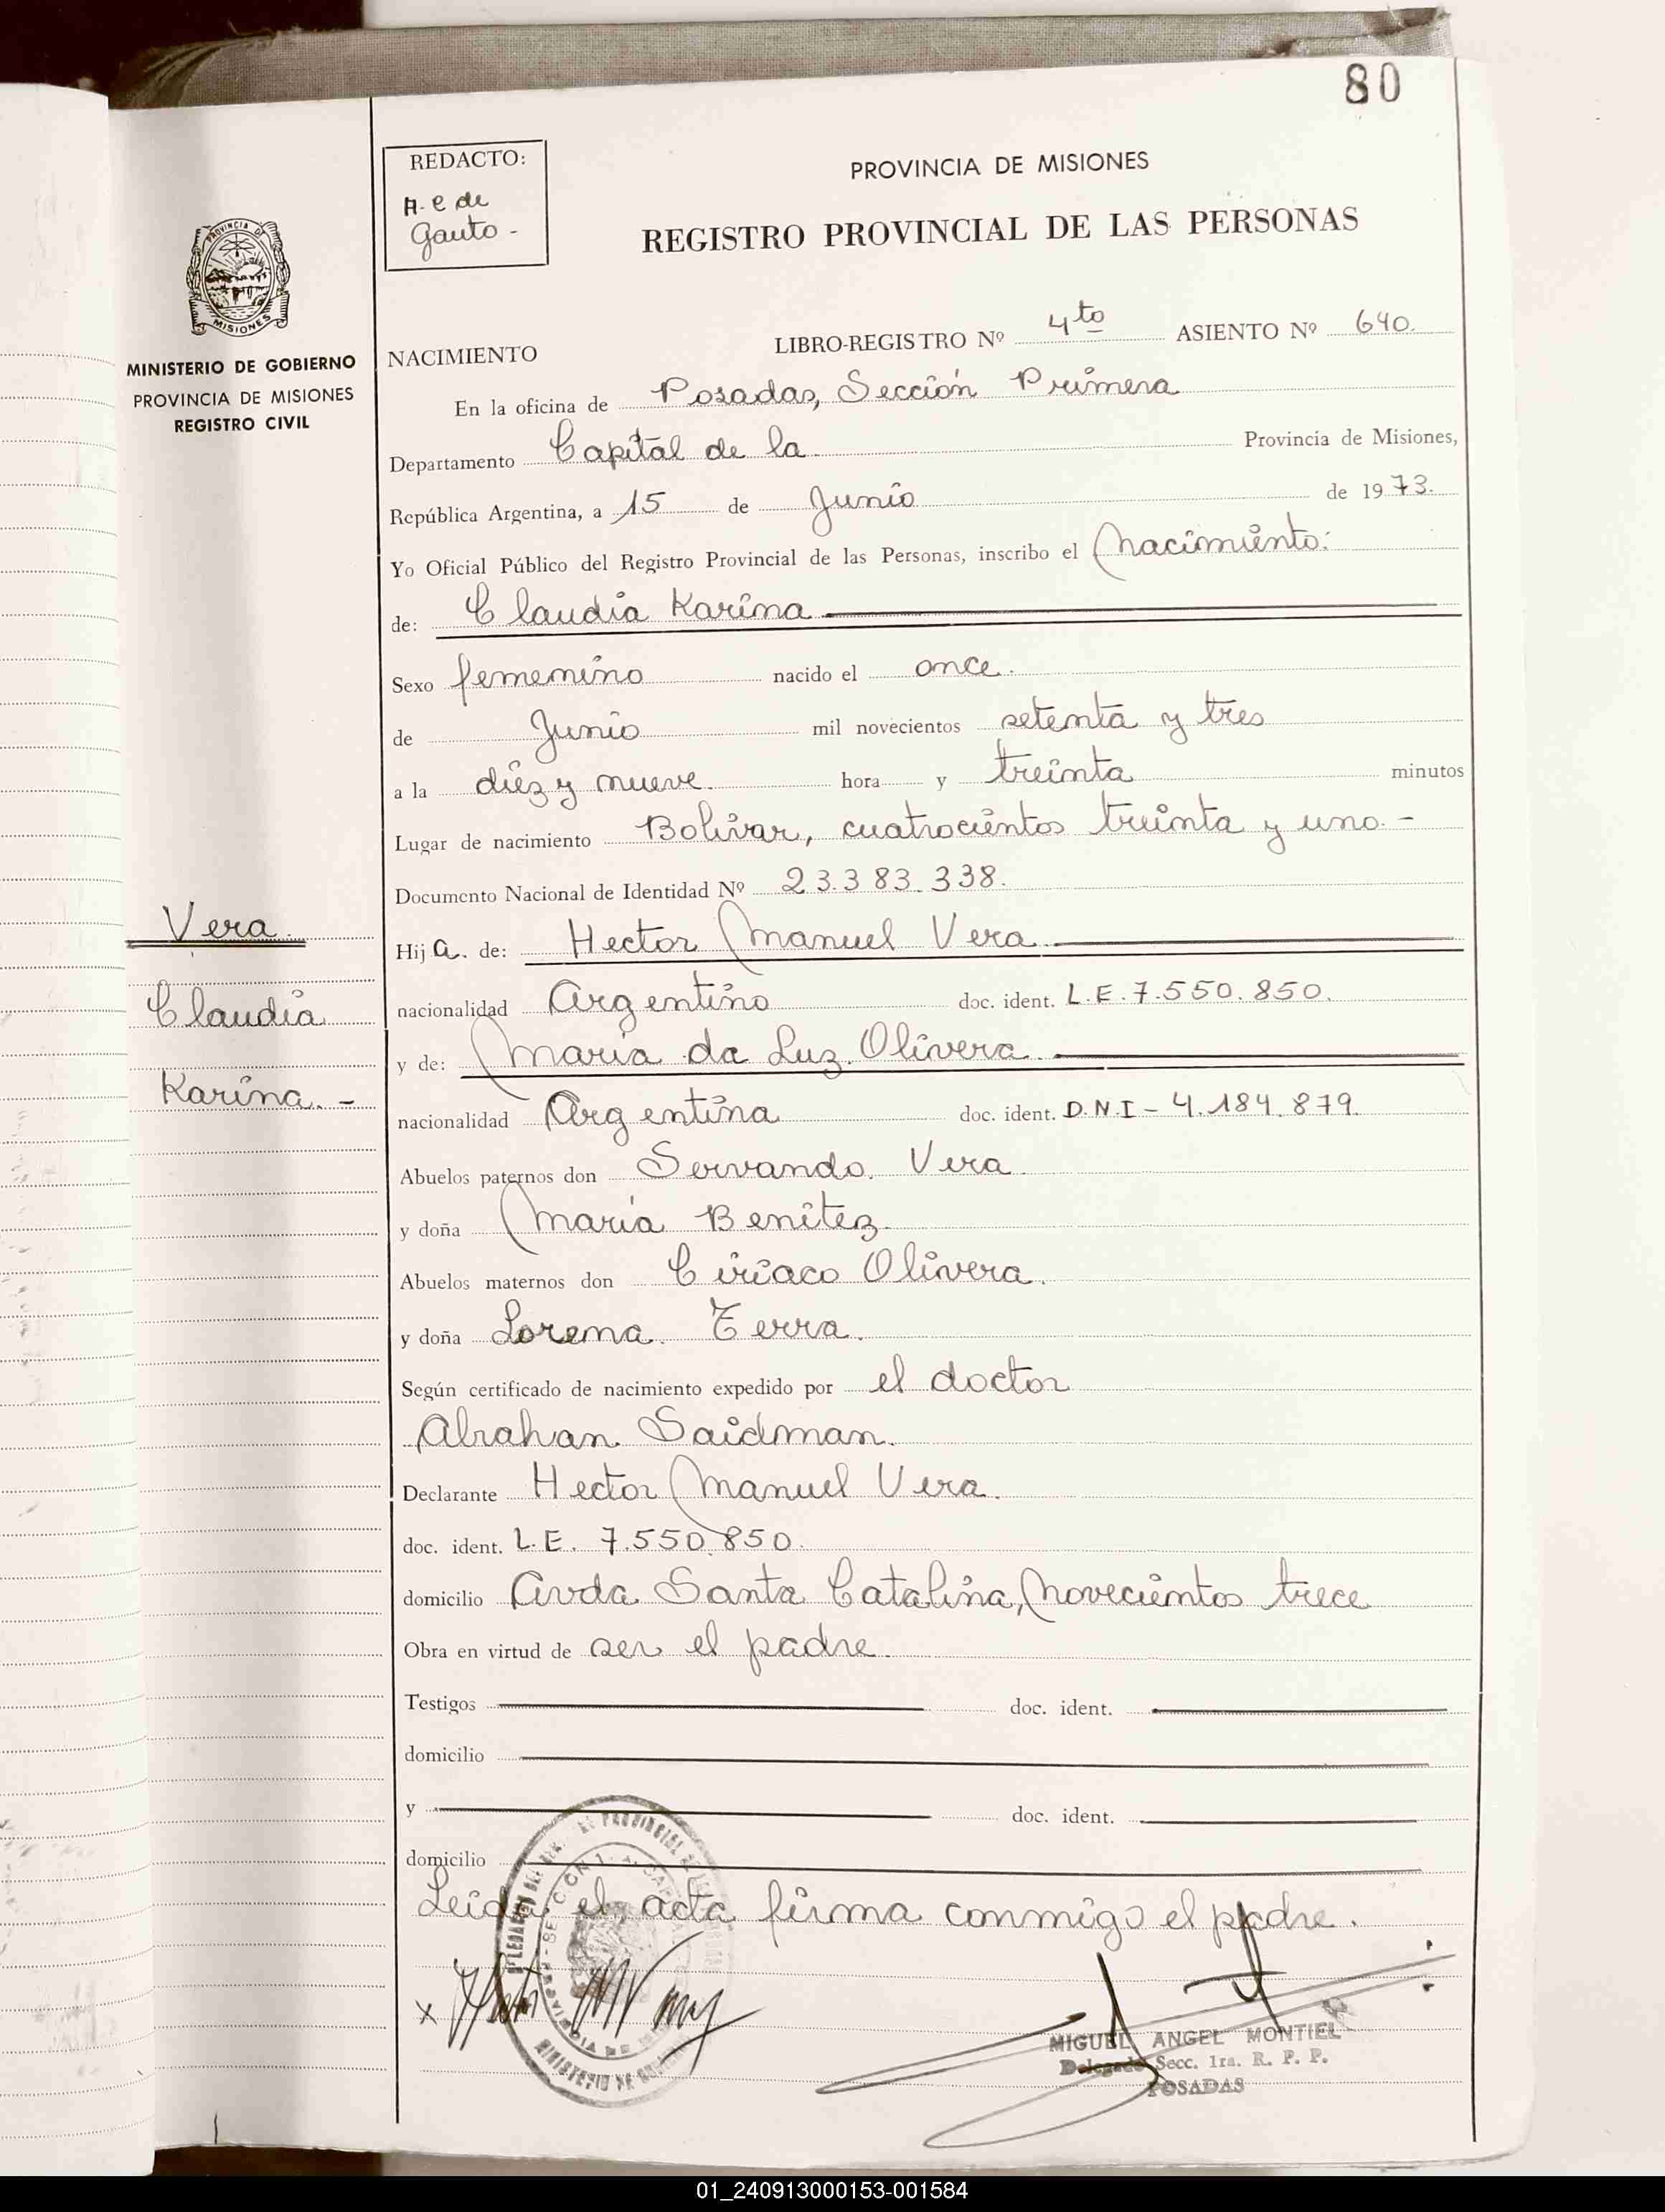 80
REDACTO:
A. e de
Gauto -
PROVINCIA DE MISIONES
REGISTRO PROVINCIAL DE LAS PERSONAS
PROVINCIA DE
MISIONES
MINISTERIO DE GOBIERNO
PROVINCIA DE MISIONES
REGISTRO CIVIL
NACIMIENTO
LIBRO-REGISTRO Nº 4to ASIENTO Nº 640.
En la oficina de Posadas, Sección Primera
Departamento Capital de la Provincia de Misiones,
República Argentina, a 15 de Junio de 1973.
Yo Oficial Público del Registro Provincial de las Personas, inscribo el Nacimiento:
de: Claudia Karina
Sexo femenino nacido el once.
de Junio mil novecientos setenta y tres
a la diez y nueve. hora y treinta minutos
Lugar de nacimiento Bolívar, cuatrocientos treinta y uno. -
Documento Nacional de Identidad Nº 23.383.338.
Vera
Hija. de: Hector Manuel Vera
Claudia
nacionalidad Argentino doc. ident. L.E. 7.550.850.
y de: Maria da Luz Olivera
Karina. -
nacionalidad Argentina doc. ident. D.N.I - 4.184.879.
Abuelos paternos don Servando Vera
y doña María Benitez
Abuelos maternos don Ciriaco Olivera.
y doña Lorena Terra.
Según certificado de nacimiento expedido por el doctor
Abrahan Saidman.
Declarante Hector Manuel Vera.
doc. ident. L.E. 7.550.850.
domicilio Avda Santa Catalina, Novecientos trece
Obra en virtud de ser el padre.
Testigos doc. ident.
domicilio
y doc. ident.
domicilio
Leida el acta firma conmigo el padre.
x
MIGUEL ANGEL MONTIEL
Delegado Secc. 1ra. R. P. P.
POSADAS
01_240913000153-001584